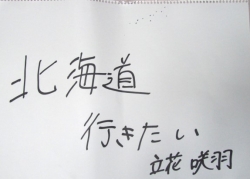 北海道
行きたい
立花 咲羽